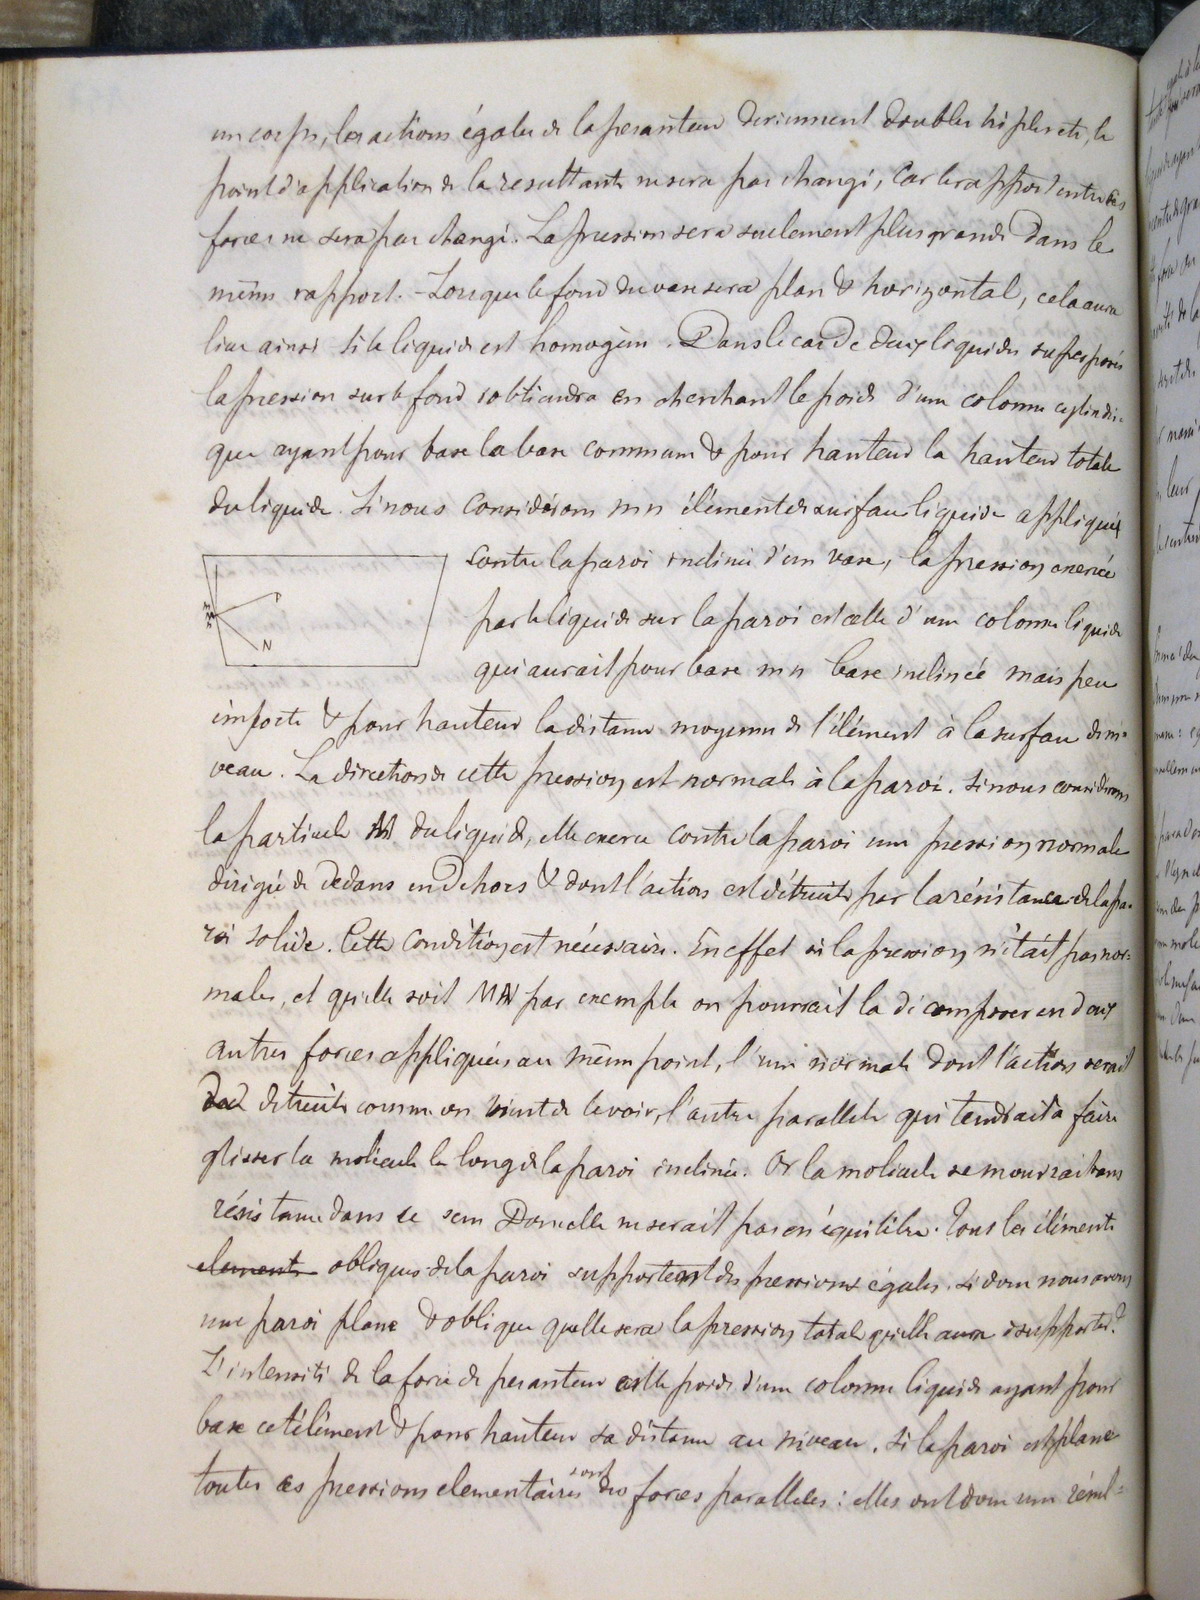 un corps, les actions égales de la pesanteur deviennent doubles triples etc, le
point d'application de la resultante ne sera pas changé, car le rapport entre ces
forces ne sera pas changé. La pression sera seulement plus grande dans le
même rapport. - Lorsque le fond du vase sera plan & horizontal, cela aura
lieu ainsi si le liquide est homogène. Dans le cas de deux liquides superposés
la pression sur le fond s'obtiendra en cherchant le poids d'une colonne cylindri-
que ayant pour base la base commune & pour hauteur la hauteur totale
du liquide. Si nous considérons mn élément de surface liquide appliquée
contre la paroi inclinée d'un vase, la pression exercée
par le liquide sur la paroi est celle d'une colonne liquide
N
qui aurait pour base mn base inclinée mais peu
importe & pour hauteur la distance moyenne de l'élément à la surface de ni-
veau. La direction de cette pression est normale à la paroi. Si nous considérons
la particule M du liquide, elle exerce contre la paroi une pression normale
dirigée de dedans en dehors & dont l'action est détruite par la résistance de la pa-
roi solide. Cette condition est nécessaire. En effet si la pression n'était pas nor-
male, et qu'elle soit MN par exemple on pourrait la décomposer en deux
autres forces appliquées au même point, l'une normale dont l'action serait
detruite comme on vient de le voir, l'autre parallele qui tendrait à faire
glisser la molécule le long de la paroi inclinée. Or la molécule se mouvrait sans
résistance dans ce sens Donc elle ne serait pas en équilibre. Tous les éléments
elements obliques de la paroi supportent des pressions égales. Si donc nous avons
une paroi plane & oblique quelle sera la pression totale qu'elle aura à supporter?
L'intensité de la force de pesanteur est le poids d'une colonne liquide ayant pour
base cet élément & pour hauteur sa distance au niveau. Si la paroi est plane
toutes ces pressions elementaires sont des forces paralleles : elles ont donc une résul-